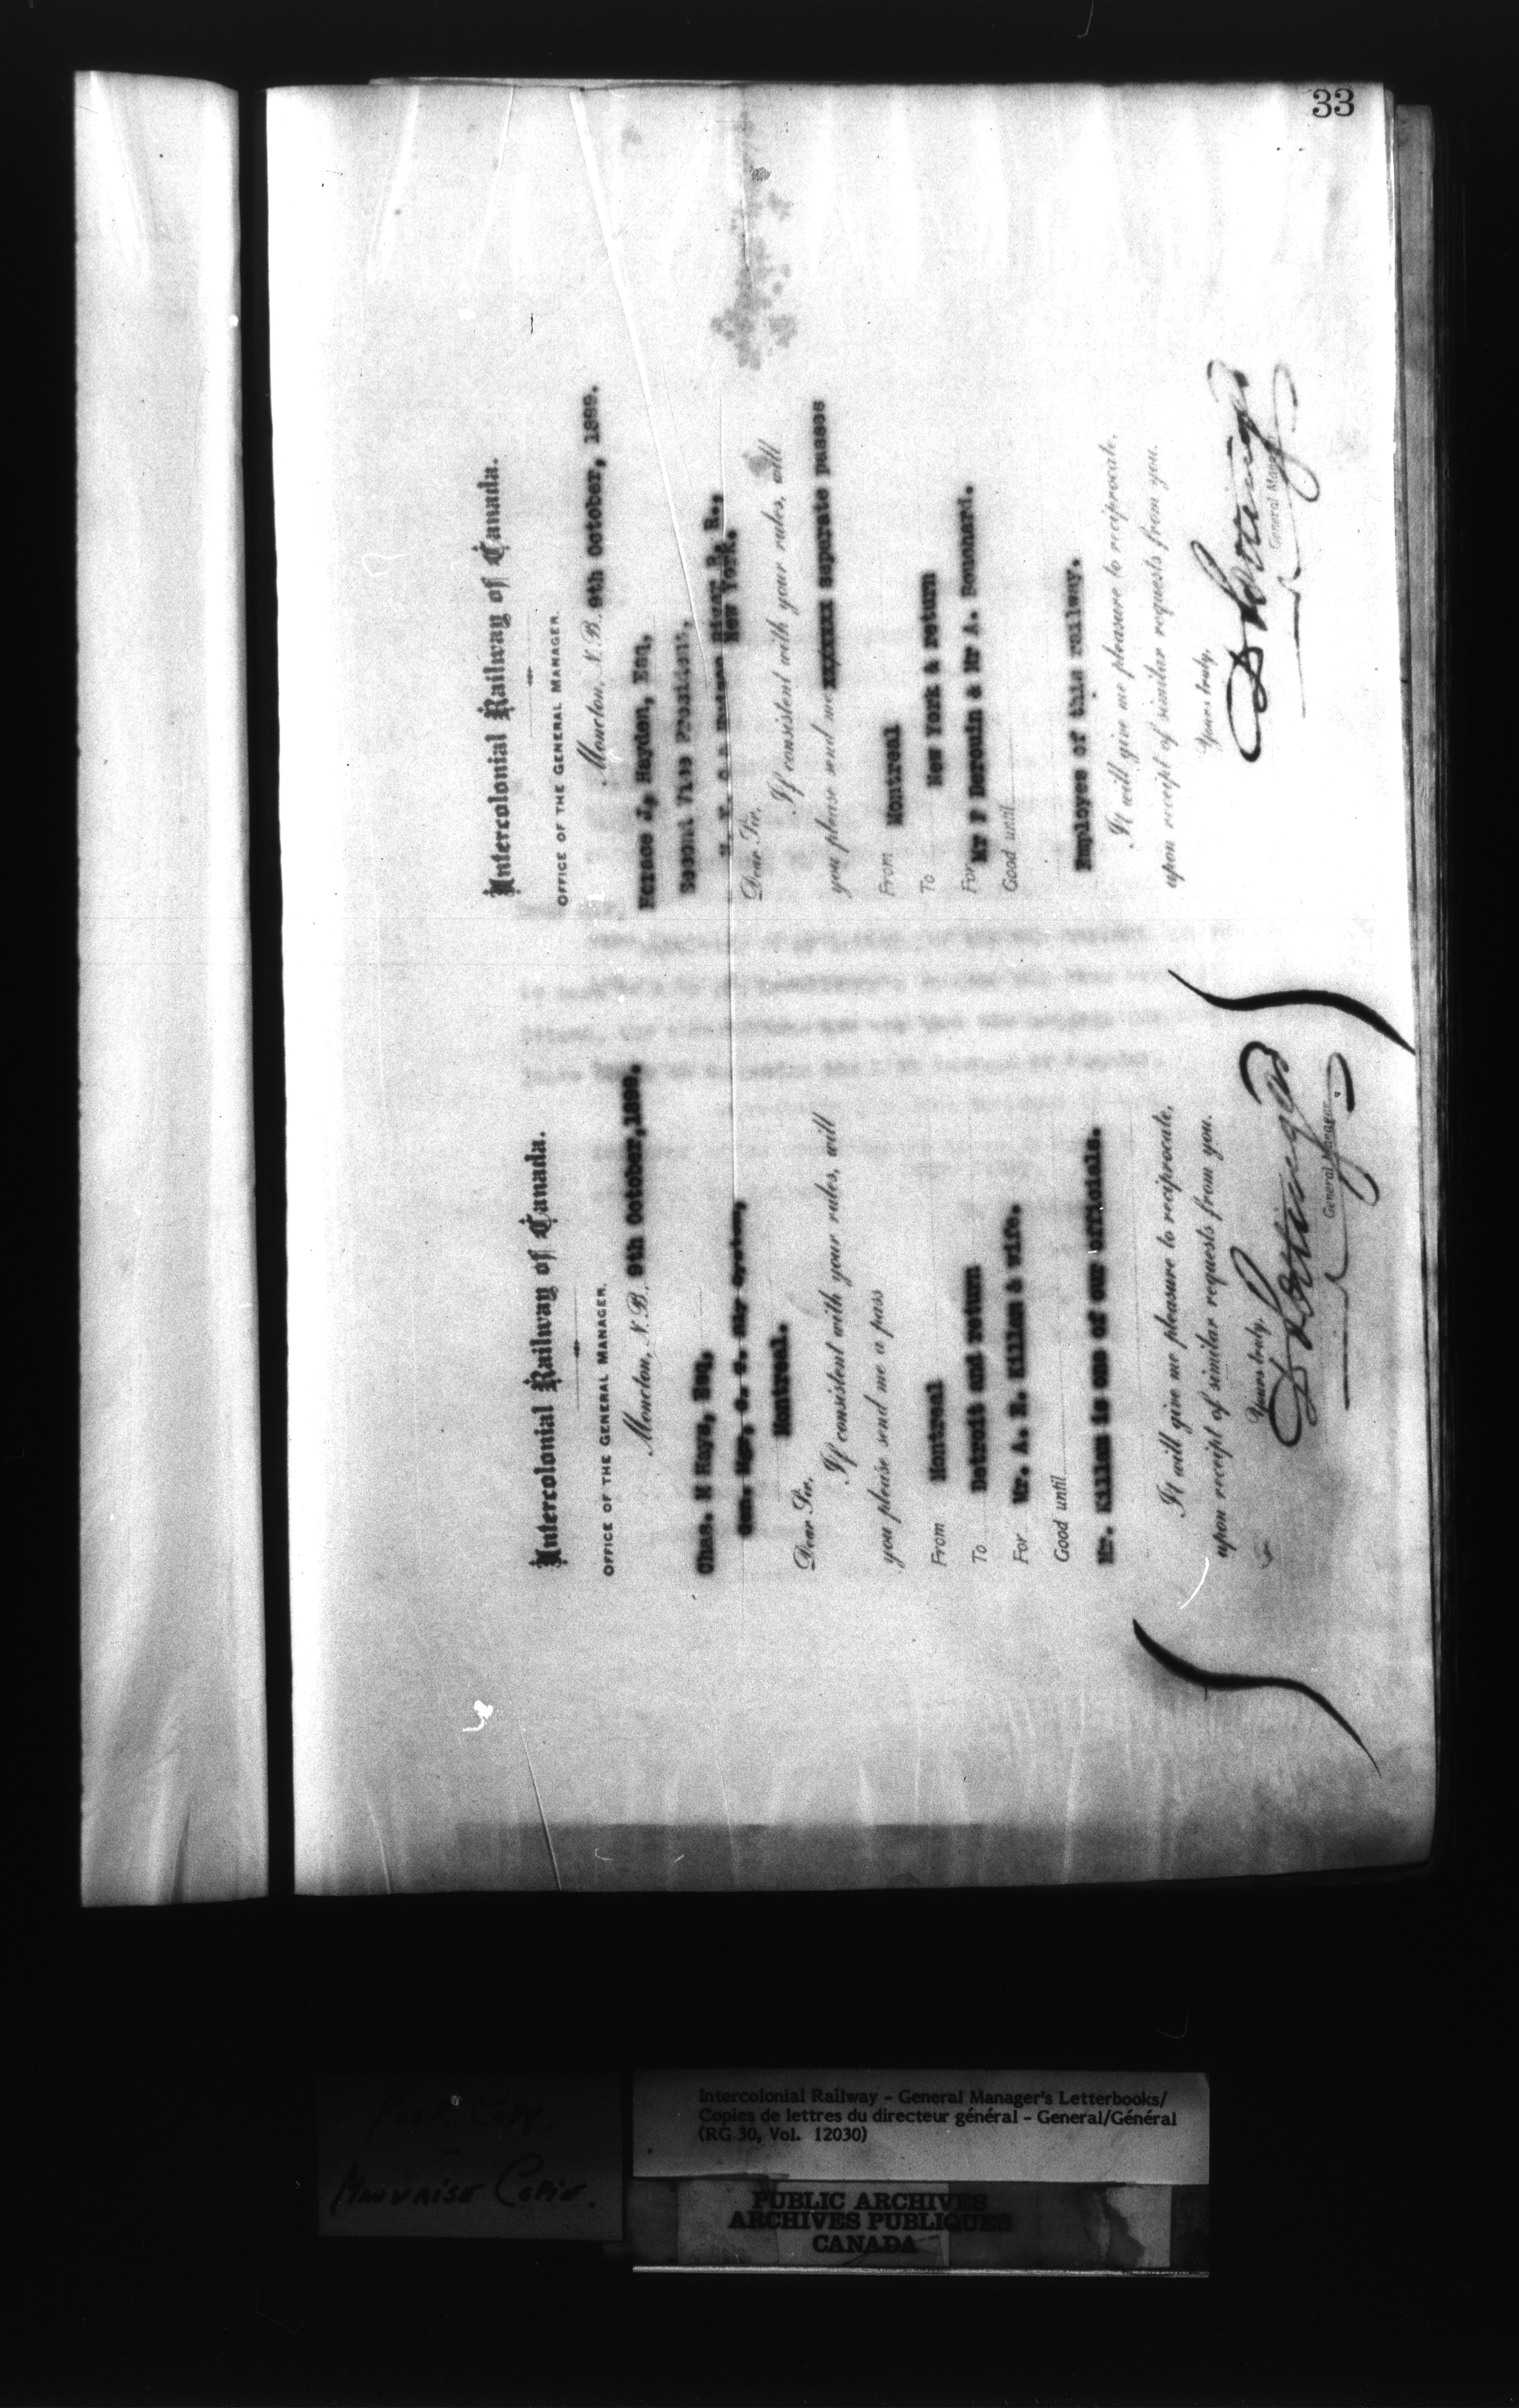 33
Intercolonial Railway of Canada.
OFFICE OF THE GENERAL MANAGER.
Moncton, N.B., 9th October, 1899.
Chas. M Hays, Esq,
Gen. Mgr, G. T. Rly System,
Montreal.
Dear Sir,
If consistent with your rules, will
you please send me a pass
From Montreal
To Detroit and return
For Mr. A. E. Killam & wife.
Good until
Mr. Killam is one of our officials.
It will give me pleasure to reciprocate,
upon receipt of similar requests from you.
Yours truly,
D Pottinger
General Manager
Intercolonial Railway of Canada.
OFFICE OF THE GENERAL MANAGER.
Moncton, N.B., 9th October, 1899.
Horace J, Hayden, Esq.
Second Vice President,
N. Y. C & Hudson River R. R.,
New York.
Dear Sir,
If consistent with your rules, will
you please send me xxxxxx separate passes
From Montreal
To New York & return
For Mr F Derouin & Mr A.
Good until
Employes of this railway.
It will give me pleasure to reciprocate,
upon receipt of similar requests from you.
Yours truly,
D Pottinger
General Manager
POOR COPY.
MAUVAISE COPIE.
Intercolonial Railway - General Manager's Letterbooks/
Copies de lettres du directeur général - General/Général
(RG 30, Vol. 12030)
PUBLIC ARCHIVES
ARCHIVES PUBLIQUES
CANADA